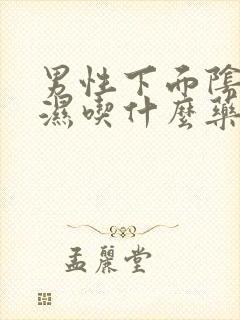 男性下面陰
濕喫什麼藥
孟麗堂